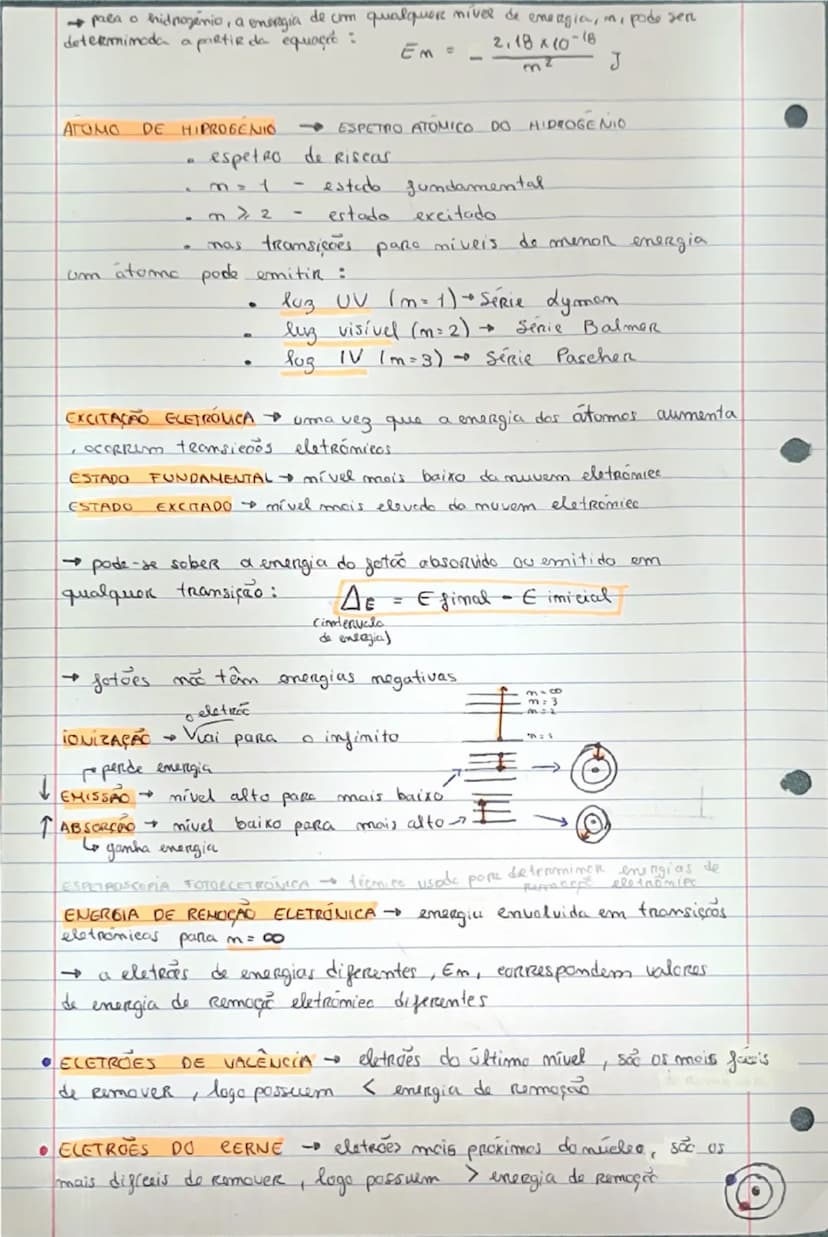 → para o hidrogénio, a energia de um qualquer nível de energia, n, pode ser
determinada a partir da equação :
En = - 2,18 × 10⁻¹⁸ / n² J
ÁTOMO DE HIDROGÉNIO → ESPETRO ATÓMICO DO HIDROGÉNIO
• espetro de riscas
• n = 1 - estado fundamental
• n ⩾ 2 - estado excitado
• nas transições para níveis de menor energia
um átomo pode emitir :
• luz UV (n=1) → Série Lyman
• luz visível (n=2) → Série Balmer
• luz IV (n=3) → Série Paschen
EXCITAÇÃO ELETRÓNICA → uma vez que a energia dos átomos aumenta
, ocorrem transições eletrónicas
ESTADO FUNDAMENTAL → nível mais baixo da nuvem eletrónica
ESTADO EXCITADO → nível mais elevado da nuvem eletrónica
→ pode-se saber a energia do fotão absorvido ou emitido em
qualquer transição : ΔE = E final - E inicial
(intervalo
de energia)
→ fotões não têm energias negativas
n=∞
n=3
n=2
n=1
o eletrão
IONIZAÇÃO → Vai para o infinito
↱ perde energia
↓ EMISSÃO → nível alto para mais baixo
↑ ABSORÇÃO → nível baixo para mais alto
↳ ganha energia
ESPETROSCOPIA FOTOELETRÓNICA → técnica usada para determinar energias de
remoção eletrónica
ENERGIA DE REMOÇÃO ELETRÓNICA → energia envolvida em transições
eletrónicas para n = ∞
→ a eletrões de energias diferentes, En, correspondem valores
de energia de remoção eletrónica diferentes
• ELETRÕES DE VALÊNCIA → eletrões do último nível, são os mais fáceis
de remover, logo possuem < energia de remoção
• ELETRÕES DO CERNE → eletrões mais próximos do núcleo, são os
mais difíceis de remover, logo possuem > energia de remoção